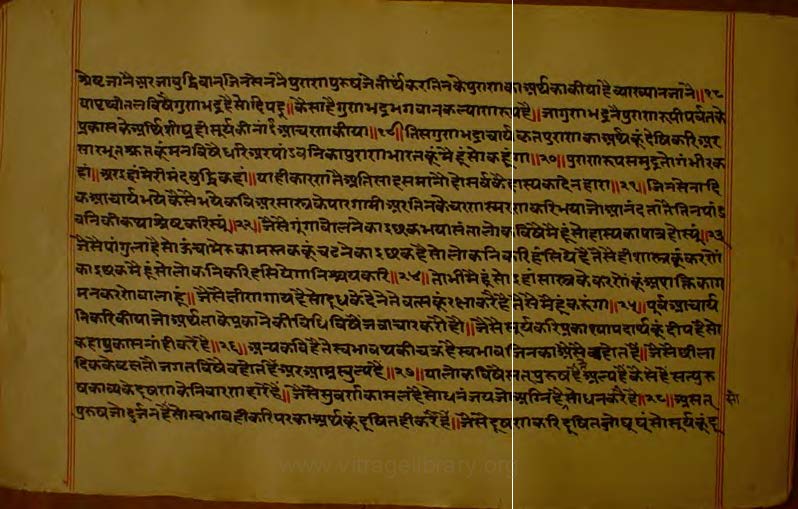 श्रेष्ट जानै अर जा बुद्धिवान जिनसेननै पुराण पुरुष जे तीर्थंकर तिनके पुराण का अर्थ का कीया है व्याख्यान जानै ॥१८
या पृथ्वीतलविषै गुणभद्र है सो दिपहू ॥ कैसा है गुणभद्र भगवान कल्याणरूप है ॥ जा गुणभद्रनै पुराणरूपी पर्वत के
प्रकास के अर्थि शीघ्र ही सूर्य की नांई आचरण कीया ॥१९॥ तिस गुणभद्राचार्य कृत पुराण का अर्थ कूं देखि करि अर
सारभूत श्रुत कूं मनविषै धरि अर पांडवनि का पुराण भारत कूं मैं हूं सो कहूंगा ॥२०॥ पुराणरूप समुद्र तो गंभीर क
हां ॥ अर इहां मेरी मंद बुद्धि कहां ॥ या ही कारणनै अति साहस मानो हो सर्व कै हास्य का देनहारा ॥२१॥ जिनसेनादि
क आचार्य भये कैसे भये कवि अर सास्त्र के पारगामी अर तिनके चरणा स्मरण करि भया जो आनंद तातै तिन पांड
वनि की कथा श्रेष्ट करिस्यूं ॥२२॥ जैसे गूंगा बोलने का इछक भया संता लोकविषै मैं हूं सो हास्य का पात्र होस्यूं ॥२३
जैसे पांगुला है सो ऊंचा मेरु का मस्तक कूं चढने का इछक है सो लोकनि करि हसिये है तैसे ही शास्त्र कूं करणे
का इछक मैं हूं सो लोकनि करि हसियेगा निश्चय करि ॥२४॥ तो भी मैं हूं सो इहां सास्त्र के करणे कूं अशक्ति का ग
मन करणे वाला हूं ॥ जैसे क्षीण गाय है सो दूध के देनेतै वत्स कूं रक्षा करै है तैसे मैं हूं करूंगा ॥२५॥ पूर्व आचार्य
निकरि कीया जो अर्थ ता के प्रकाने की विधिविषै
जैसे सूर्य करि प्रकाश्या पदार्थ कूं दीव है सो
कहा प्रकास नांही करै है ॥२६॥ अन्य कवि है ते स्वभाव
जैसे
दिक केष्ट
जगतविषै बहोत है अर आम्र स्वल्प है ॥२७॥ या लोकविषै सत्पुरुष है अल्प है कैसे है सत्पुरु
ष काव्य के दूषण के निवारणहारे है ॥ जैसे सुवर्ण का मल है सो धनंजय जो अग्नि है सो धन करै है ॥२८॥ असत् सो
पुरुष जो दुर्जन है सो स्वभाव ही करि पर का अर्थ कूं दूषित ही करै है ॥ जैसे दूषण करि दूषित जो घूघू सो सूर्य कूं दू
www.vitragelibrary.org